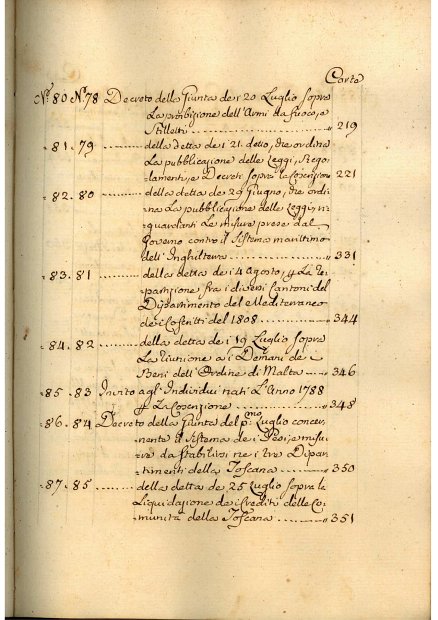 Carte
N.º 80 N.º 78 Decreto della Giunta de' 20 Luglio sopra
La proibizione dell'Armi da fuoco, e
Stiletti ............ 219
81. 79 ............ della detta de' 21. detto, che ordina
La pubblicazione delle Leggi, Rego-
lamenti, e Decreti sopra la Coscrizione 221
82. 80 ............ della detta de' 29 Giugno, che ordi-
na La pubblicazione delle Leggi, ri-
guardanti Le misure prese dal
Governo contro il Sistema marittimo
dell'Inghilterra ............ 331
83. 81 ............ della detta de' 4 Agosto, p. La Re-
partizione fra i diversi Cantoni del
Dipartimento del Mediterraneo
de' Coscritti del 1808 ............ 344
84. 82 ............ della detta de' 19 Luglio sopra
La riunione ai Demani de
Beni dell'Ordine di Malta ... 346
85. 83 Invito agl'Individui nati L'Anno 1788
p. La Coscrizione ............ 348
86. 84 Decreto della Giunta del p.mo Luglio concer-
nente il Sistema de' Pesi, e misu-
re da stabilirsi ne i tre Dipar-
timenti della Toscana ............ 350
87. 85 ............ della detta de 25 Luglio sopra la
Liquidazione de i Crediti delle Co-
munità della Toscana ............ 351